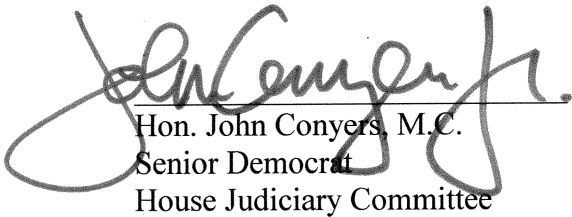 John Conyers Jr.
Hon. John Conyers, M.C.
Senior Democrat
House Judiciary Committee